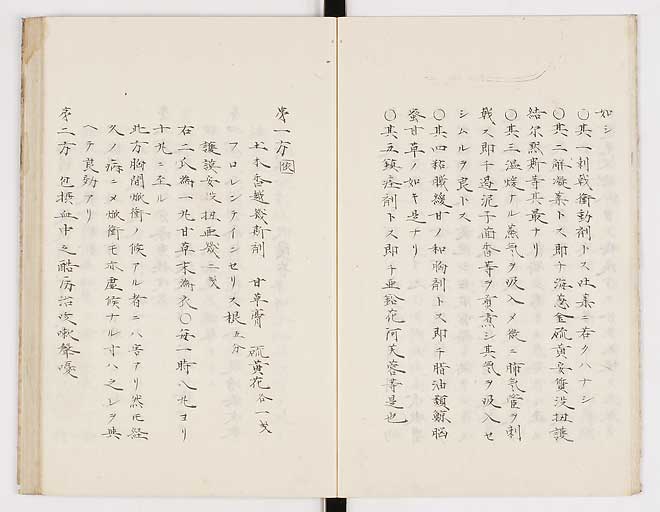 如シ
〇其一刺戟衝動剤トス吐薬ニ若クハナシ
〇其二解凝薬トス即チ海葱金硫黄安質没扭護
結尓黙斯等其最ナリ
〇其三温煖ナル蒸気ヲ吸入メ微ニ肺気管ヲ刺
戟ス即チ過泥子茴香等ヲ煎煮シ其気ヲ吸入セ
シムルヲ良トス
〇其四粘職緩甘ノ和胸剤トス即チ脂油類鯨脳
蜜甘草ノ如キ是ナリ
〇其五鎮痙剤トス即チ亜鉛花阿芙蓉等是也
第一方
土木香越幾斯剤 甘草膏 硫黄花各一戈
フロレンテインセリス根五分
護謨安没扭亜幾二戈
右二瓜為一丸甘草末為衣〇毎一時八丸ヨリ
十丸ニ至ル
此方胸間焮衝ノ候アル者ニハ害アリ然モ経
久ノ病ニメ焮衝モ亦虚候ナル寸ハ之レヲ與
ヘテ良効アリ
第二方 包摂血中之酷厉治咳嗽聲嗄